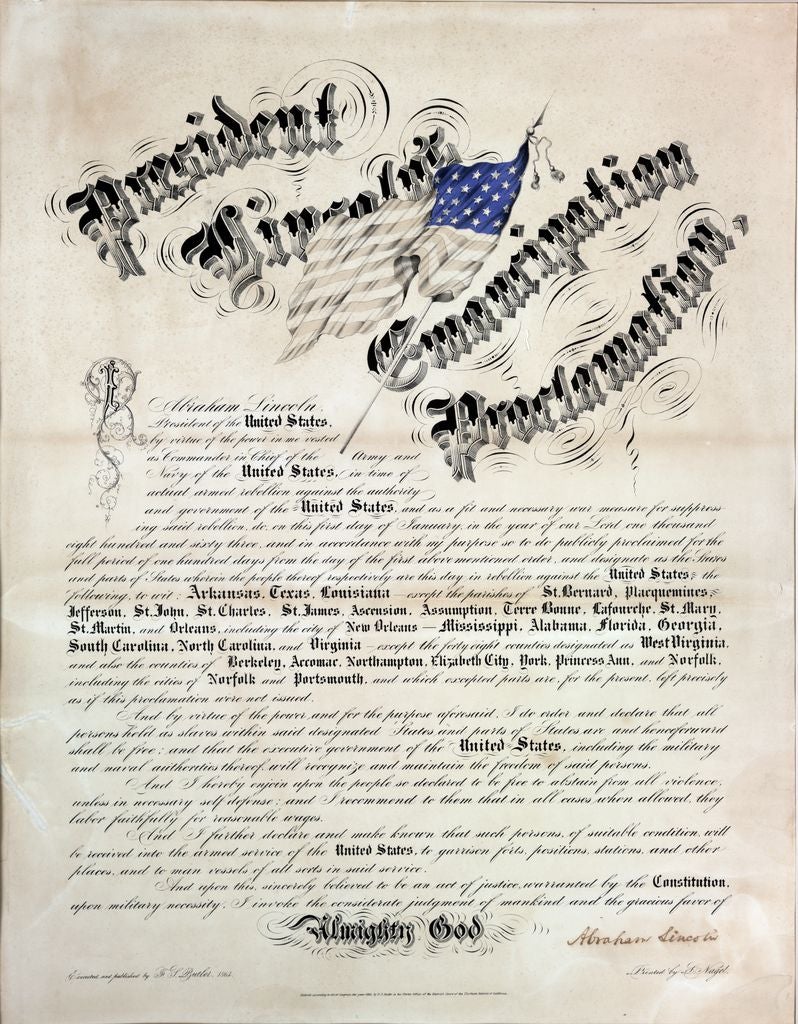 President
Lincoln's
Emancipation
Proclamation,
I
Abraham Lincoln,
President of the United States,
by virtue of the power in me vested
as Commander in Chief of the Army and
Navy of the United States, in time of
actual armed rebellion against the authority
and government of the United States, and as a fit and necessary war measure for suppress-
ing said rebellion, do, on this first day of January, in the year of our Lord one thousand
eight hundred and sixty three, and in accordance with my purpose so to do publicly proclaimed for the
full period of one hundred days from the day of the first above mentioned order, and designate as the States
and parts of States wherein the people thereof respectively are this day in rebellion against the United States the
following, to wit: Arkansas, Texas, Louisiana — except the parishes of St. Bernard, Placquemines,
Jefferson, St. John, St. Charles, St. James, Ascension, Assumption, Terre Bonne, Lafourche, St. Mary,
St. Martin, and Orleans, including the city of New Orleans — Mississippi, Alabama, Florida, Georgia,
South Carolina, North Carolina, and Virginia — except the forty eight counties designated as West Virginia,
and also the counties of Berkeley, Accomac, Northampton, Elizabeth City, York, Princess Ann, and Norfolk,
including the cities of Norfolk and Portsmouth, and which excepted parts are, for the present, left precisely
as if this proclamation were not issued.
And by virtue of the power and for the purpose aforesaid, I do order and declare that all
persons held as slaves within said designated States and parts of States are and henceforward
shall be free; and that the executive government of the United States, including the military
and naval authorities thereof, will recognize and maintain the freedom of said persons.
And I hereby enjoin upon the people so declared to be free to abstain from all violence,
unless in necessary self defense; and I recommend to them that in all cases when allowed, they
labor faithfully for reasonable wages.
And I further declare and make known that such persons, of suitable condition, will
be received into the armed service of the United States, to garrison forts, positions, stations, and other
places, and to man vessels of all sorts in said service.
And upon this, sincerely believed to be an act of justice, warranted by the Constitution,
upon military necessity, I invoke the considerate judgment of mankind and the gracious favor of
Almighty God
Abraham Lincoln
Executed and published by F. S. Butler, 1863.
Printed by L. Nagel.